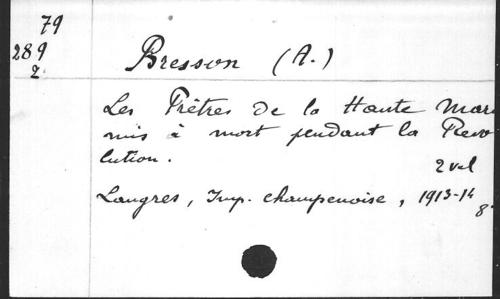 79
289
2
Bresson (A.)
Les Prêtres de la Haute Mar
mis à mort pendant la Revo
lution.
2 vol
Langres, Imp. champenoise, 1913-14
8°